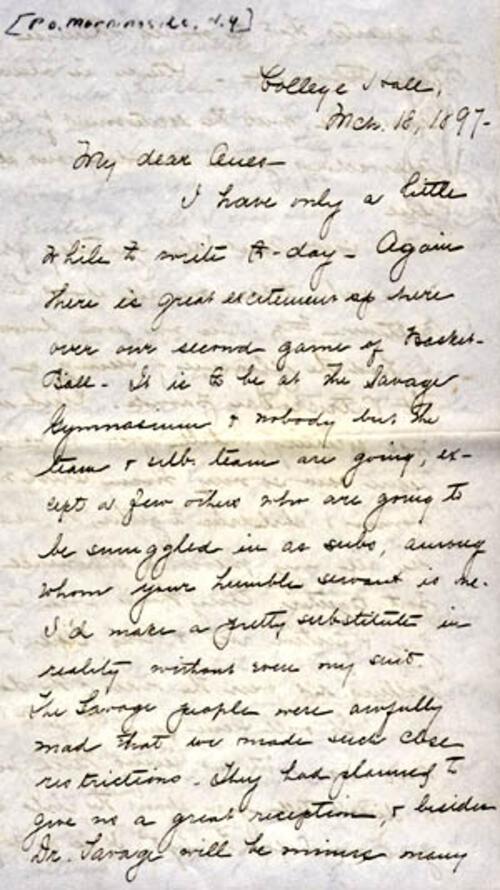 [P.O. Morningside, N.Y]
College Hall,
Mch. 18, 1897-
My dear
I have only a little
while to write to-day - Again
there is great excitement up here
over our second game of Basket-
Ball - It is to be at the Savage
Gymnasium & nobody but the
team & sub. team are going, ex-
cept a few others who are going to
be smuggled in as subs, among
whom your humble servant is me.
I'd make a pretty substitute in
reality without even my suit.
The Savage people were awfully
mad that we made such
restrictions. They had planned to
give us a great reception, & besides
Dr. Savage will be minus many